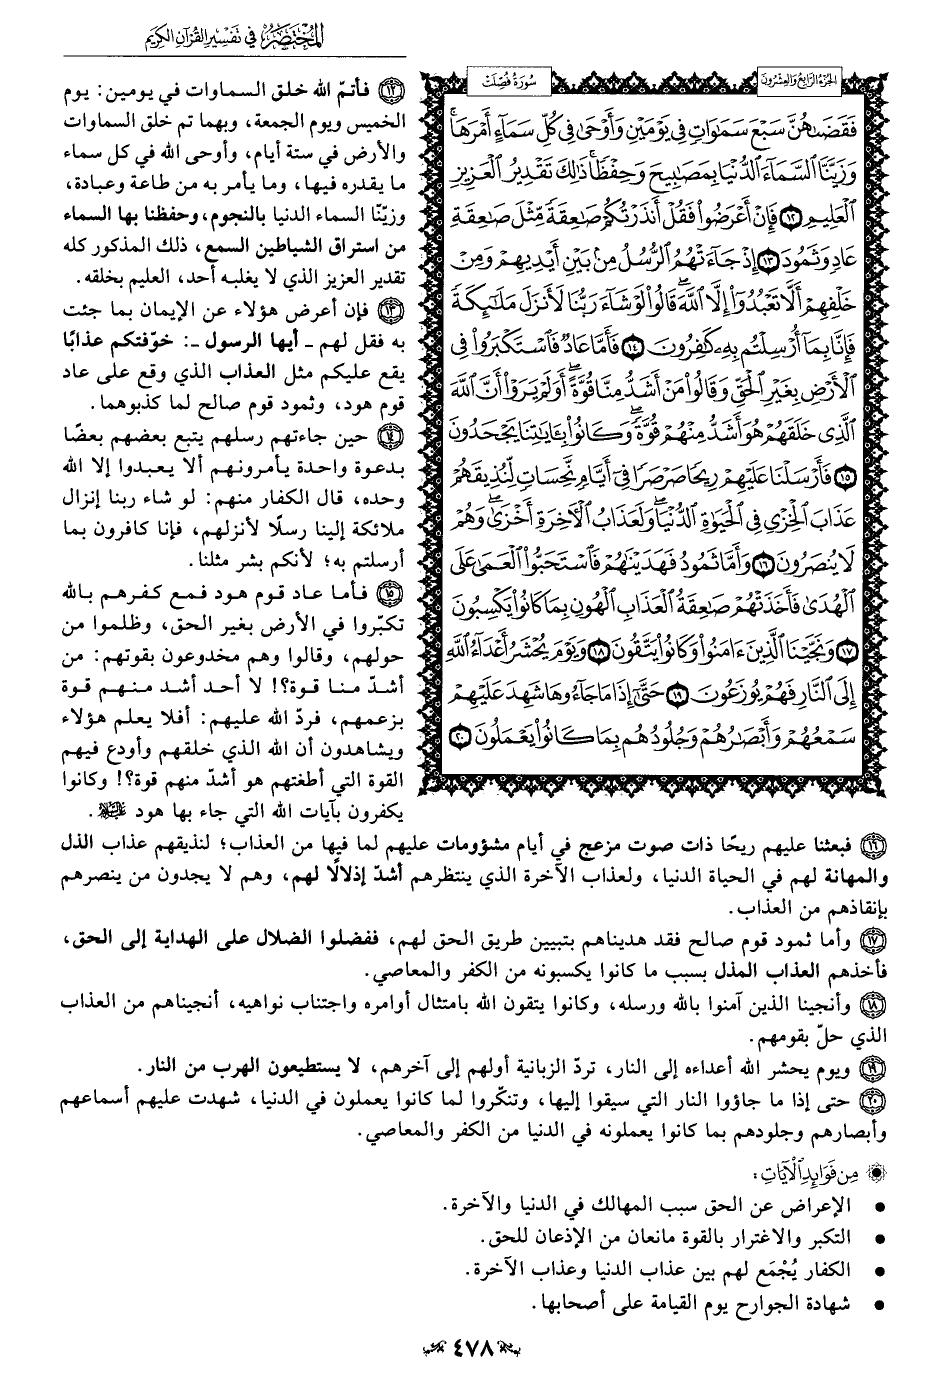 المختصر في تفسير القرآن الكريم
الجزء الرابع والعشرون
سورة فصلت
فَقَضَىٰهُنَّ سَبْعَ سَمَٰوَاتٍ فِي يَوْمَيْنِ وَأَوْحَىٰ فِي كُلِّ سَمَآءٍ أَمْرَهَاۚ
وَزَيَّنَّا ٱلسَّمَآءَ ٱلدُّنْيَا بِمَصَٰبِيحَ وَحِفْظًاۚ ذَٰلِكَ تَقْدِيرُ ٱلْعَزِيزِ
ٱلْعَلِيمِ ١٢ فَإِنْ أَعْرَضُوا۟ فَقُلْ أَنذَرْتُكُمْ صَٰعِقَةً مِّثْلَ صَٰعِقَةِ
عَادٍ وَثَمُودَ ١٣ إِذْ جَآءَتْهُمُ ٱلرُّسُلُ مِنۢ بَيْنِ أَيْدِيهِمْ وَمِنْ
خَلْفِهِمْ أَلَّا تَعْبُدُوٓا۟ إِلَّا ٱللَّهَۖ قَالُوا۟ لَوْ شَآءَ رَبُّنَا لَأَنزَلَ مَلَٰٓئِكَةً
فَإِنَّا بِمَآ أُرْسِلْتُم بِهِۦ كَٰفِرُونَ ١٤ فَأَمَّا عَادٌ فَٱسْتَكْبَرُوا۟ فِي
ٱلْأَرْضِ بِغَيْرِ ٱلْحَقِّ وَقَالُوا۟ مَنْ أَشَدُّ مِنَّا قُوَّةًۖ أَوَلَمْ يَرَوْا۟ أَنَّ ٱللَّهَ
ٱلَّذِي خَلَقَهُمْ هُوَ أَشَدُّ مِنْهُمْ قُوَّةًۖ وَكَانُوا۟ بِـَٔايَٰتِنَا يَجْحَدُونَ
١٥ فَأَرْسَلْنَا عَلَيْهِمْ رِيحًا صَرْصَرًا فِيٓ أَيَّامٍ نَّحِسَاتٍ لِّنُذِيقَهُمْ
عَذَابَ ٱلْخِزْيِ فِي ٱلْحَيَوٰةِ ٱلدُّنْيَاۖ وَلَعَذَابُ ٱلْأٓخِرَةِ أَخْزَىٰۖ وَهُمْ
لَا يُنصَرُونَ ١٦ وَأَمَّا ثَمُودُ فَهَدَيْنَٰهُمْ فَٱسْتَحَبُّوا۟ ٱلْعَمَىٰ عَلَى
ٱلْهُدَىٰ فَأَخَذَتْهُمْ صَٰعِقَةُ ٱلْعَذَابِ ٱلْهُونِ بِمَا كَانُوا۟ يَكْسِبُونَ
١٧ وَنَجَّيْنَا ٱلَّذِينَ ءَامَنُوا۟ وَكَانُوا۟ يَتَّقُونَ ١٨ وَيَوْمَ يُحْشَرُ أَعْدَآءُ ٱللَّهِ
إِلَى ٱلنَّارِ فَهُمْ يُوزَعُونَ ١٩ حَتَّىٰٓ إِذَا مَا جَآءُوهَا شَهِدَ عَلَيْهِمْ
سَمْعُهُمْ وَأَبْصَٰرُهُمْ وَجُلُودُهُم بِمَا كَانُوا۟ يَعْمَلُونَ ٢٠
١٢ فأتمّ الله خلق السماوات في يومين: يوم
الخميس ويوم الجمعة، وبهما تم خلق السماوات
والأرض في ستة أيام، وأوحى الله في كل سماء
ما يقدره فيها، وما يأمر به من طاعة وعبادة،
وزيّنّا السماء الدنيا بالنجوم، وحفظنا بها السماء
من استراق الشياطين السمع، ذلك المذكور كله
تقدير العزيز الذي لا يغلبه أحد، العليم بخلقه.
١٣ فإن أعرض هؤلاء عن الإيمان بما جئت
به فقل لهم ـ أيها الرسول ـ: خوّفتكم عذابًا
يقع عليكم مثل العذاب الذي وقع على عاد
قوم هود، وثمود قوم صالح لما كذبوهما.
١٤ حين جاءتهم رسلهم يتبع بعضهم بعضًا
بدعوة واحدة يأمرونهم ألا يعبدوا إلا الله
وحده، قال الكفار منهم: لو شاء ربنا إنزال
ملائكة إلينا رسلًا لأنزلهم، فإنا كافرون بما
أرسلتم به؛ لأنكم بشر مثلنا.
١٥ فأما عاد قوم هود فمع كفرهم بالله
تكبّروا في الأرض بغير الحق، وظلموا من
حولهم، وقالوا وهم مخدوعون بقوتهم: من
أشدّ منا قوة؟! لا أحد أشد منهم قوة
بزعمهم، فردّ الله عليهم: أفلا يعلم هؤلاء
ويشاهدون أن الله الذي خلقهم وأودع فيهم
القوة التي أطغتهم هو أشدّ منهم قوة؟! وكانوا
يكفرون بآيات الله التي جاء بها هود عليه السلام.
١٦ فبعثنا عليهم ريحًا ذات صوت مزعج في أيام مشؤومات عليهم لما فيها من العذاب؛ لنذيقهم عذاب الذل
والمهانة لهم في الحياة الدنيا، ولعذاب الآخرة الذي ينتظرهم أشدّ إذلالًا لهم، وهم لا يجدون من ينصرهم
بإنقاذهم من العذاب.
١٧ وأما ثمود قوم صالح فقد هديناهم بتبيين طريق الحق لهم، ففضلوا الضلال على الهداية إلى الحق،
فأخذهم العذاب المذل بسبب ما كانوا يكسبونه من الكفر والمعاصي.
١٨ وأنجينا الذين آمنوا بالله ورسله، وكانوا يتقون الله بامتثال أوامره واجتناب نواهيه، أنجيناهم من العذاب
الذي حلّ بقومهم.
١٩ ويوم يحشر الله أعداءه إلى النار، تردّ الزبانية أولهم إلى آخرهم، لا يستطيعون الهرب من النار.
٢٠ حتى إذا ما جاؤوا النار التي سيقوا إليها، وتنكّروا لما كانوا يعملون في الدنيا، شهدت عليهم أسماعهم
وأبصارهم وجلودهم بما كانوا يعملونه في الدنيا من الكفر والمعاصي.
من فوائد الآيات:
● الإعراض عن الحق سبب المهالك في الدنيا والآخرة.
● التكبر والاغترار بالقوة مانعان من الإذعان للحق.
● الكفار يُجْمَع لهم بين عذاب الدنيا وعذاب الآخرة.
● شهادة الجوارح يوم القيامة على أصحابها.
٤٧٨